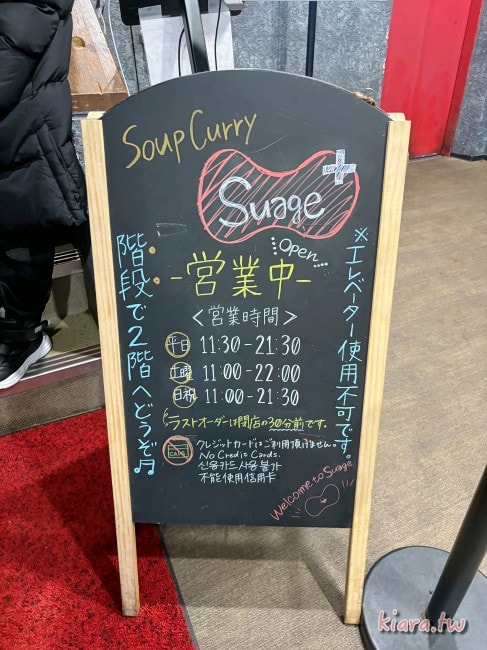 Soup Curry
Suage
Open
-営業中-
<営業時間>
平日 11:30-21:30
土曜 11:00-22:00
日祝 11:00-21:30
ラストオーダーは閉店の30分前です。
クレジットカードはご利用頂けません。
No Credit Cards.
신용카드 사용 불가
不能使用信用卡
CARD
Welcome to Suage
※エレベーター使用不可です。
階段で2階へどうぞ♬
kiara.tw